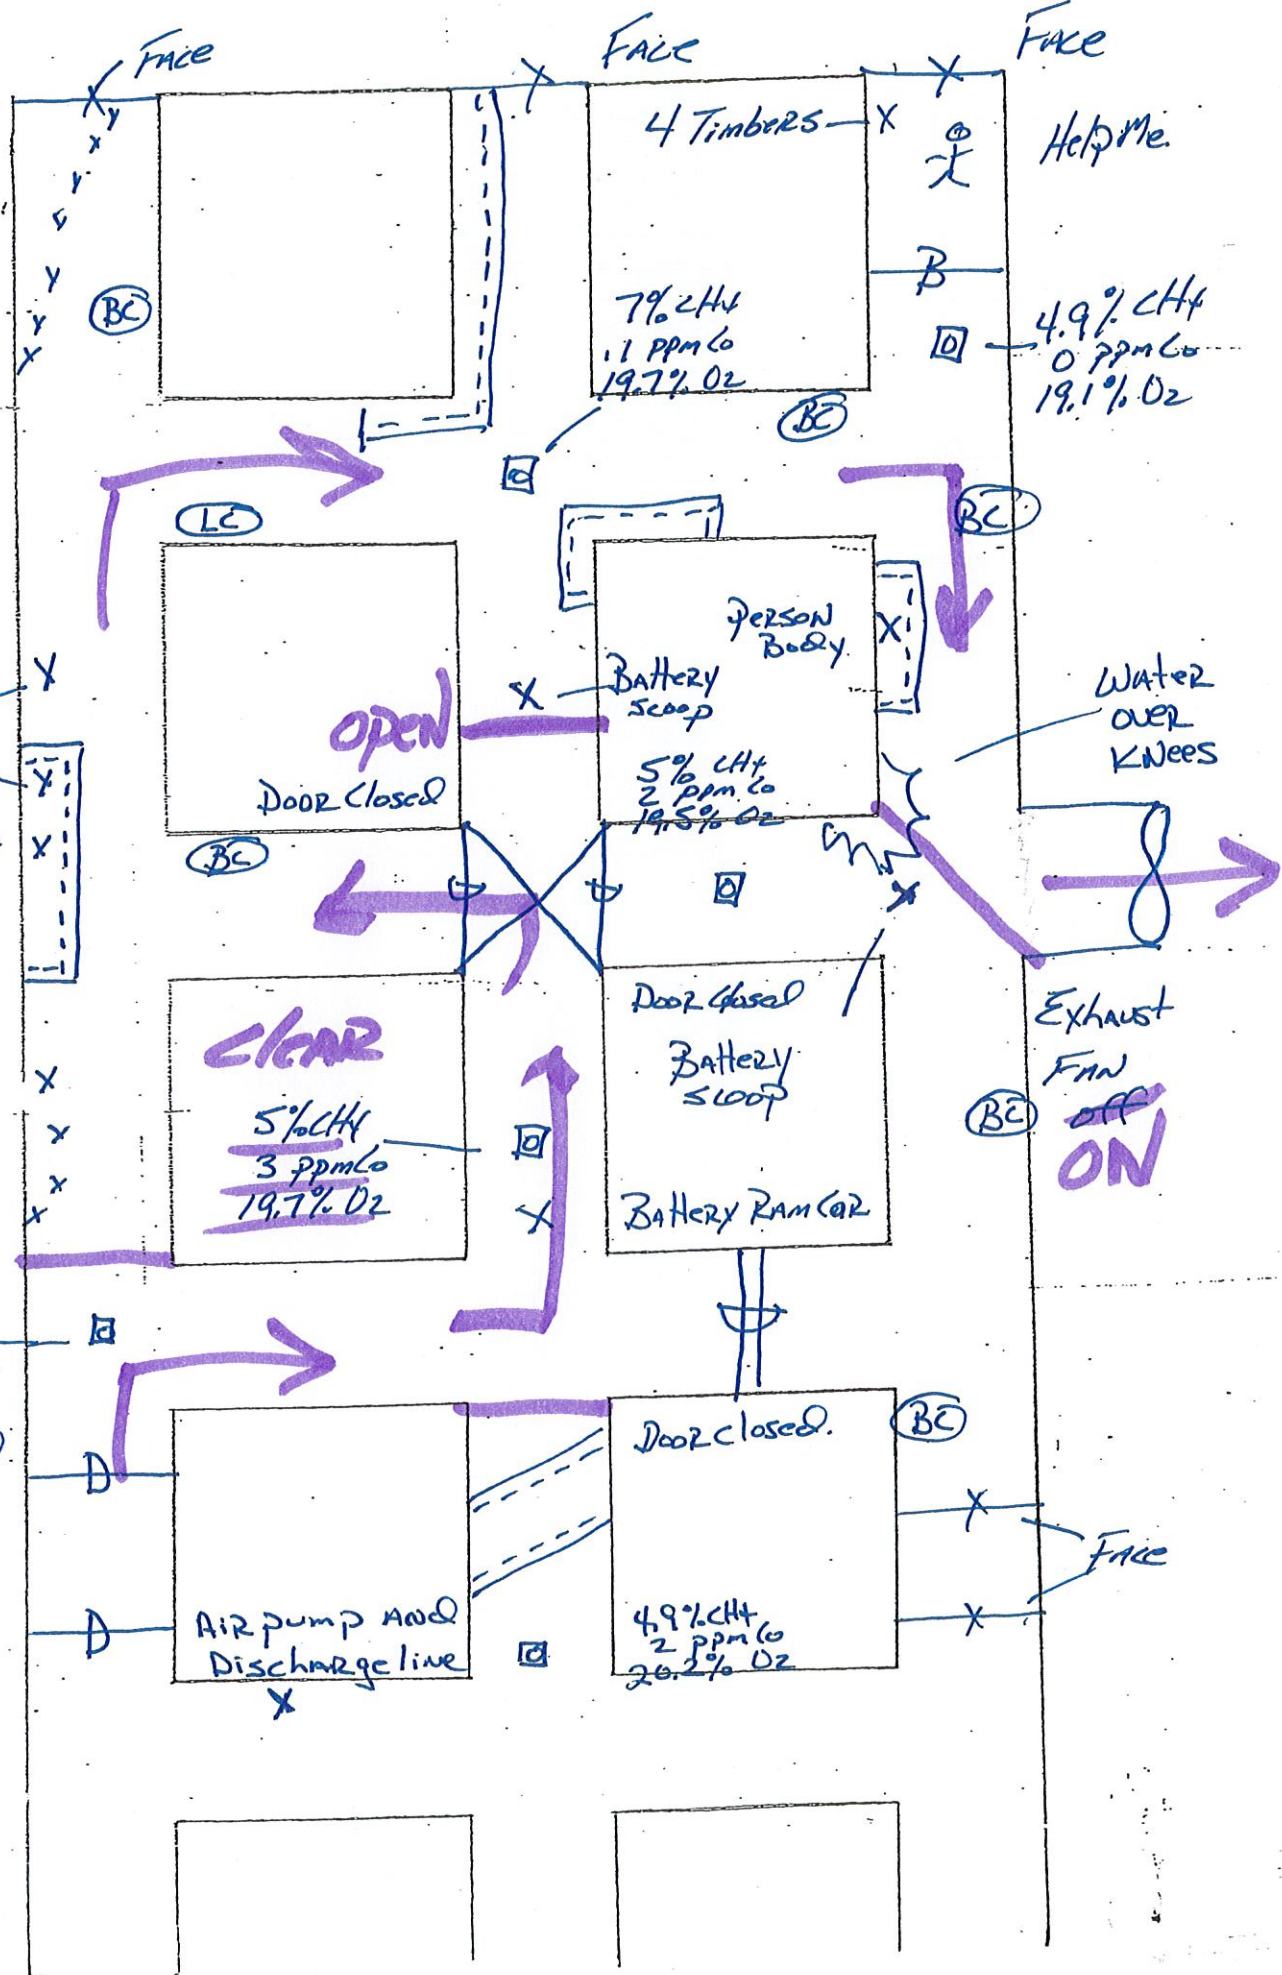 FACE
FACE
FACE
4 Timbers
Help Me.
B
BC
7% CH4
.1 ppm Co
19.7% O2
4.9% CH4
0 ppm Co
19.1% O2
BC
LC
BC
Person
Body
Battery
scoop
OPEN
Door Closed
5% CH4
2 ppm Co
19.5% O2
Water
over
Knees
BC
CleAR
5% CH4
3 ppm Co
19.7% O2
Door Closed
Battery
scoop
Battery Ram Car
Exhaust
FAN
off
ON
BC
D
Door closed.
BC
Face
D
Air pump And
Discharge line
4.9% CH4
2 ppm Co
20.2% O2